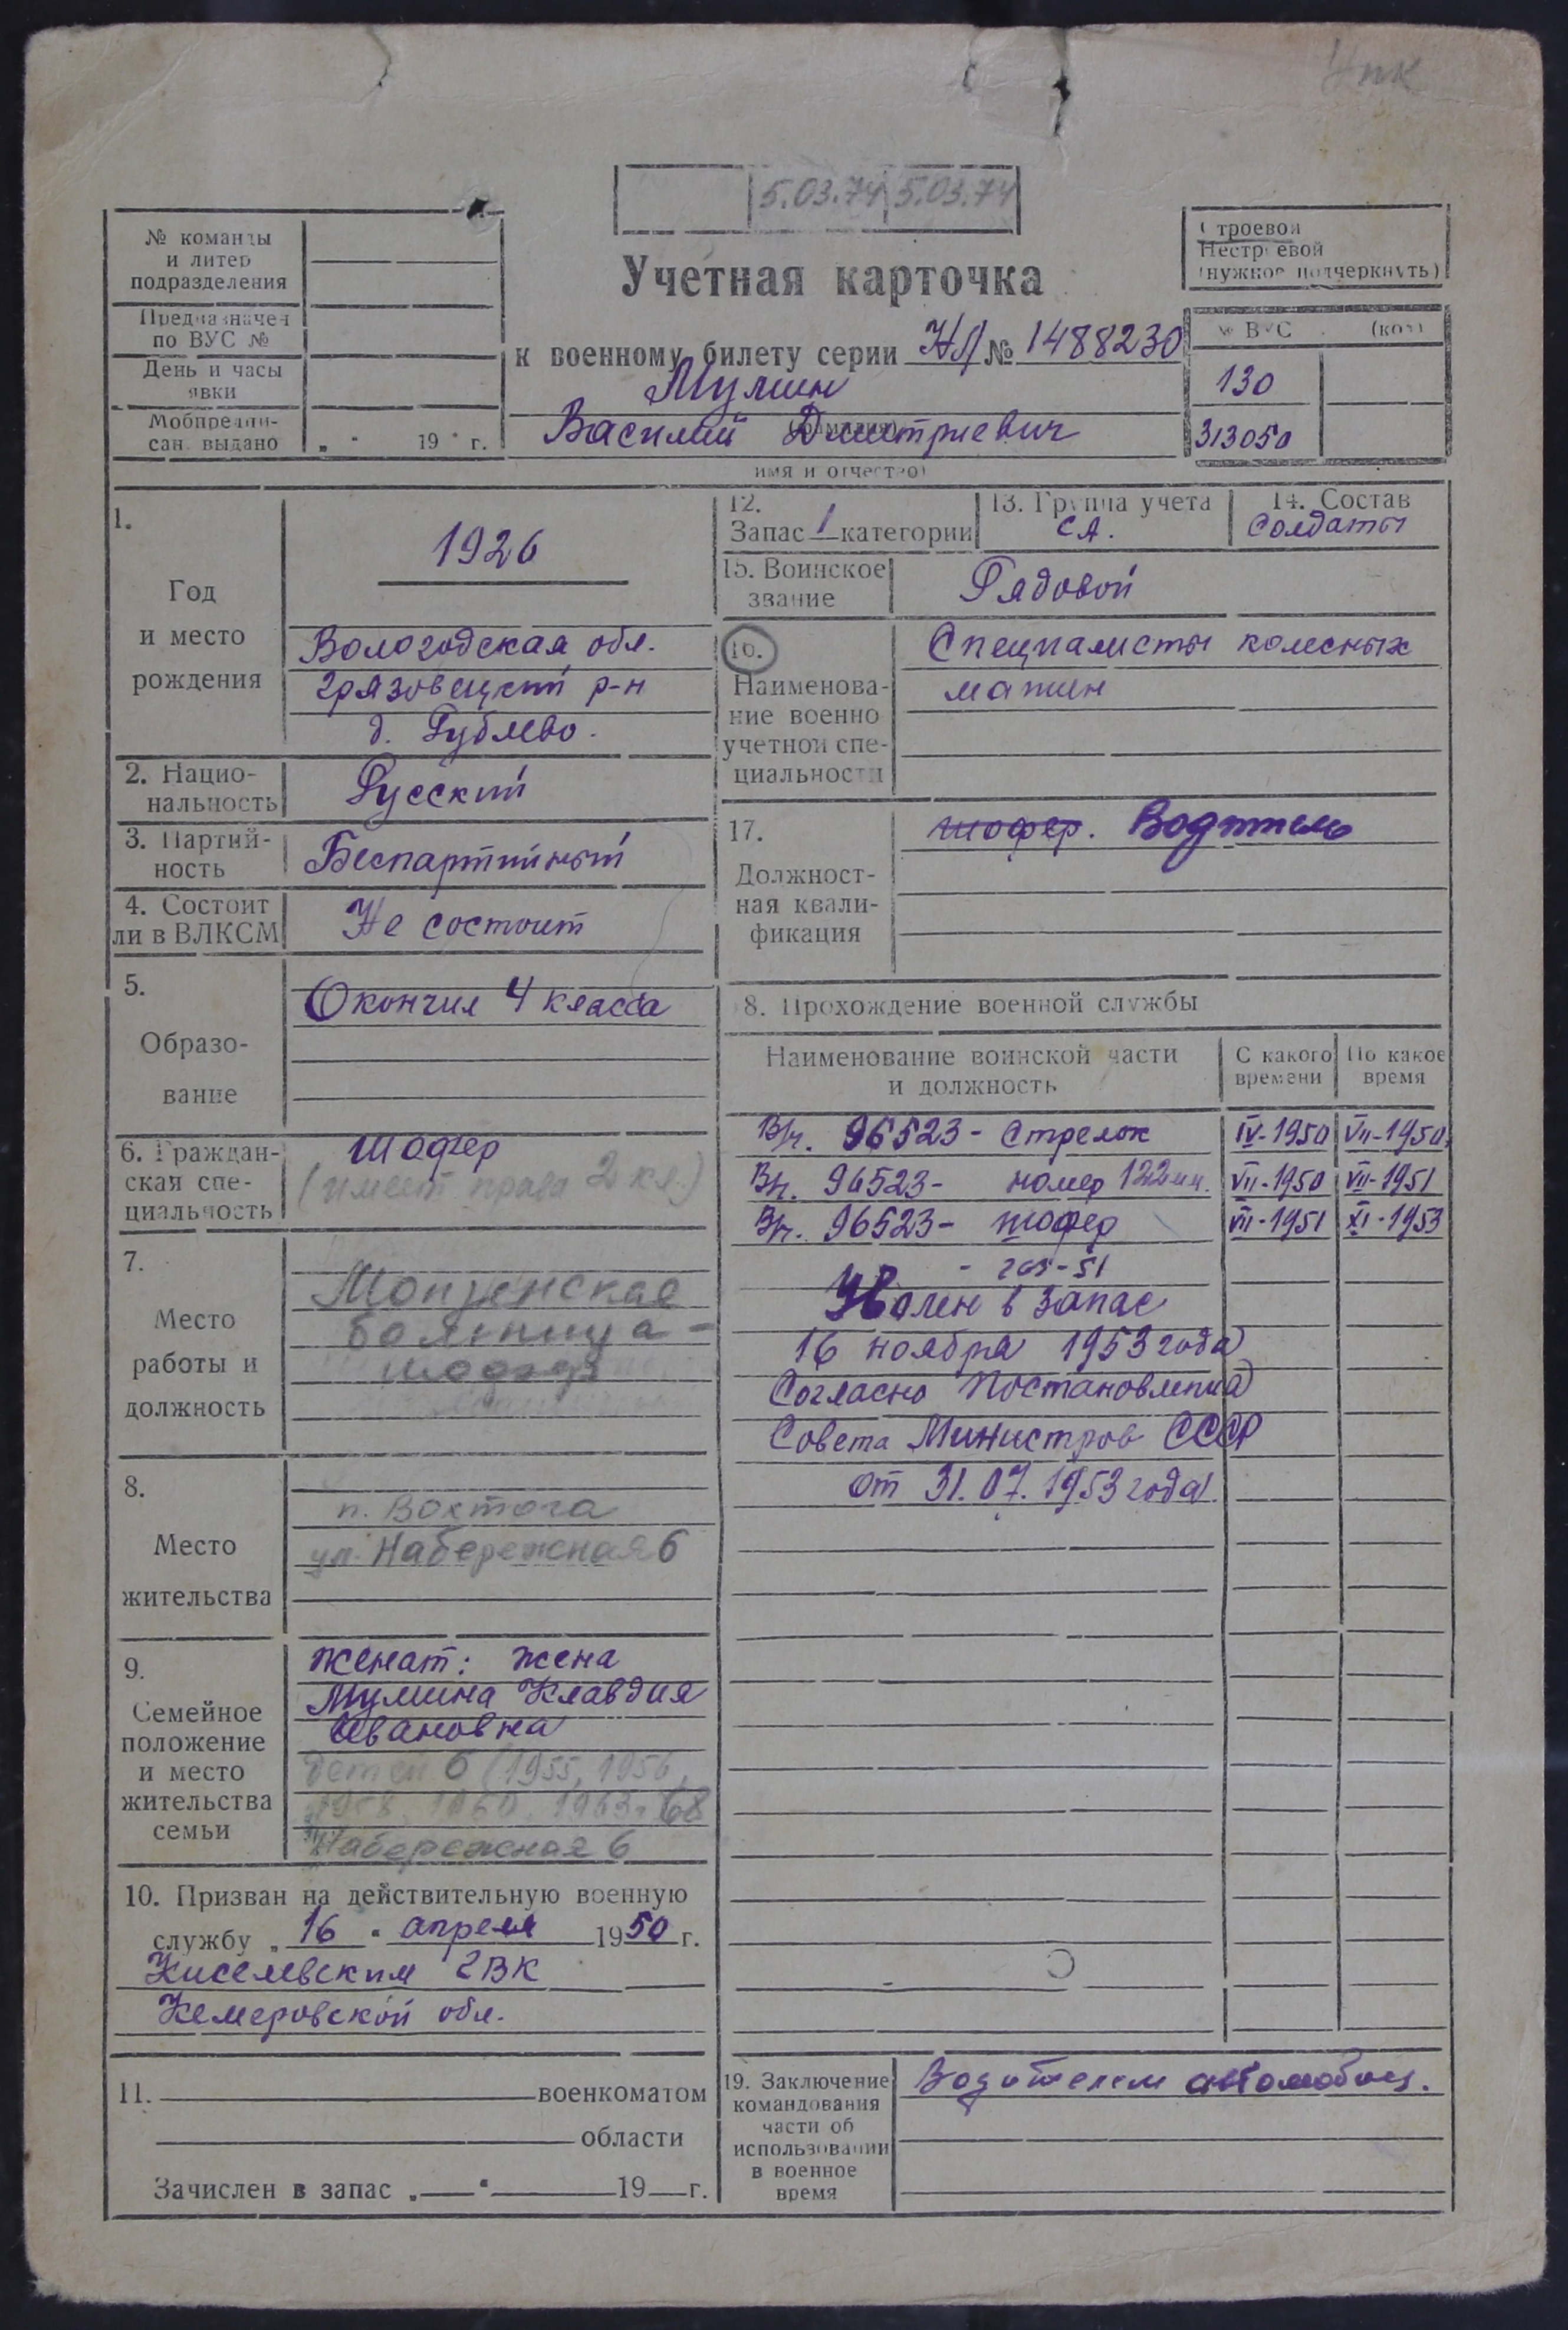 5.03.74 5.03.74
№ команды
и литер
подразделения
Предназначен
по ВУС №
День и часы
явки
Мобпредпи-
сан. выдано „ " 19 г.
Учетная карточка
к военному билету серии НД № 1488230
Мулин
(фамилия)
Василий Дмитриевич
имя и отчество)
Строевой
Нестроевой
(нужное подчеркнуть)
№ ВУС (код)
130
313050
1.
Год
и место
рождения
1926
Вологодская обл.
Грязовецкий р-н
д. Рублево.
2. Нацио-
нальность
Русский
3. Партий-
ность
Беспартийный
4. Состоит
ли в ВЛКСМ
Не состоит
5.
Образо-
вание
Окончил 4 класса
6. Граждан-
ская спе-
циальность
Шофер
(имеет права 2 кл.)
7.
Место
работы и
должность
Монзенская
больница -
шофер
8.
Место
жительства
п. Вохтога
ул. Набережная 6
9.
Семейное
положение
и место
жительства
семьи
женат: жена
Мулина Клавдия
Ивановна
детей 6 (1955, 1956,
1958, 1960, 1963, 68
Набережная 6
10. Призван на действительную военную
службу „ 16 " апреля 1950 г.
Киселевским ГВК
Кемеровской обл.
11. военкоматом
области
Зачислен в запас „ " 19 г.
12.
Запас 1 категории
13. Группа учета
СА.
14. Состав
Солдаты
15. Воинское
звание
Рядовой
16.
Наименова-
ние военно
учетной спе-
циальности
Специалисты колесных
машин
17.
Должност-
ная квали-
фикация
шофер. Водитель
8. Прохождение военной службы
Наименование воинской части
и должность
С какого
времени
По какое
время
В/ч. 96523 - Стрелок IV-1950 VII-1950
В/ч. 96523 - номер 122мм. VII-1950 VII-1951
В/ч. 96523 - шофер VII-1951 XI-1953
- газ-51
Уволен в запас
16 ноября 1953 года
Согласно Постановления
Совета Министров СССР
от 31.07.1953 года.
19. Заключение
командования
части об
использовании
в военное
время
Водителем автомобиля.